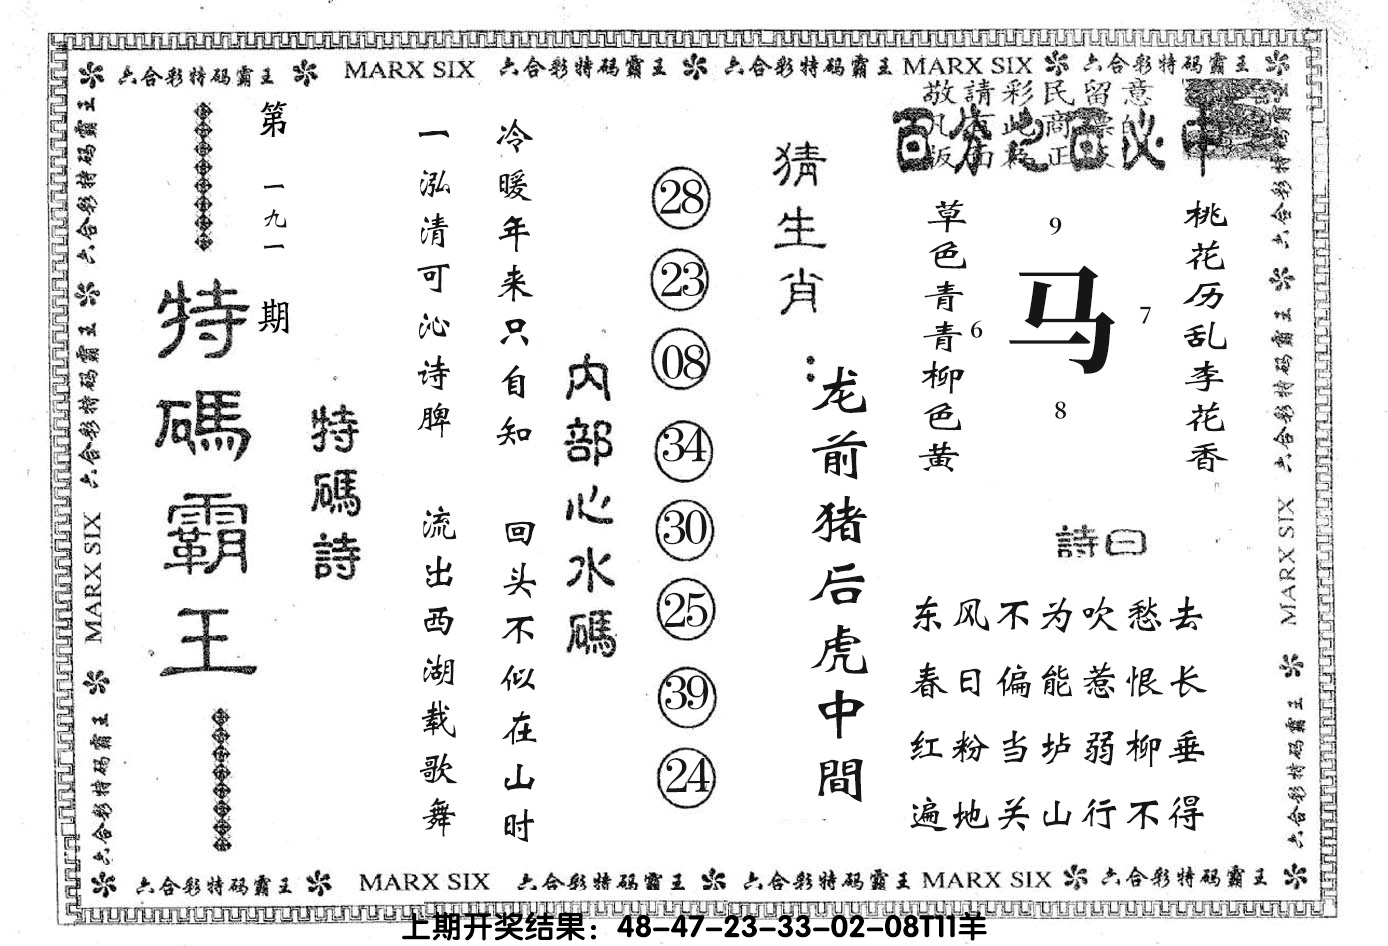 六合彩特码霸王 MARX SIX 六合彩特码霸王 六合彩特码霸王 MARX SIX 六合彩特码霸王
敬請彩民留意
百分之百必中
第一九一期
特碼霸王
特碼詩
一泓清可沁诗脾 流出西湖载歌舞
冷暖年来只自知 回头不似在山时
内部心水碼
28
23
08
34
30
25
39
24
猜生肖：
龙前猪后虎中間
草色青青柳色黄
9
6
马
7
8
桃花历乱李花香
詩曰
东风不为吹愁去
春日偏能惹恨长
红粉当垆弱柳垂
遍地关山行不得
六合彩特码霸王 六合彩特码霸王 MARX SIX 六合彩特码霸王
六合彩特码霸王 六合彩特码霸王 MARX SIX 六合彩特码霸王
六合彩特码霸王 MARX SIX 六合彩特码霸王 六合彩特码霸王 MARX SIX 六合彩特码霸王
上期开奖结果：48-47-23-33-02-08T11羊